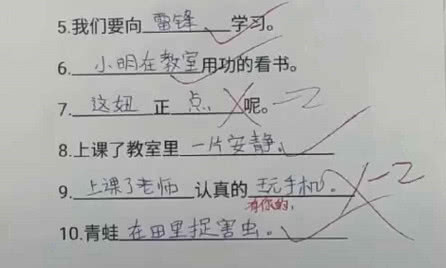 5.我们要向雷锋学习。
6.小明在教室用功的看书。
7.这妞正点,呢。 -2
8.上课了教室里一片安静。
9.上课了老师认真的玩手机。 -2
有你的,
10.青蛙在田里捉害虫。